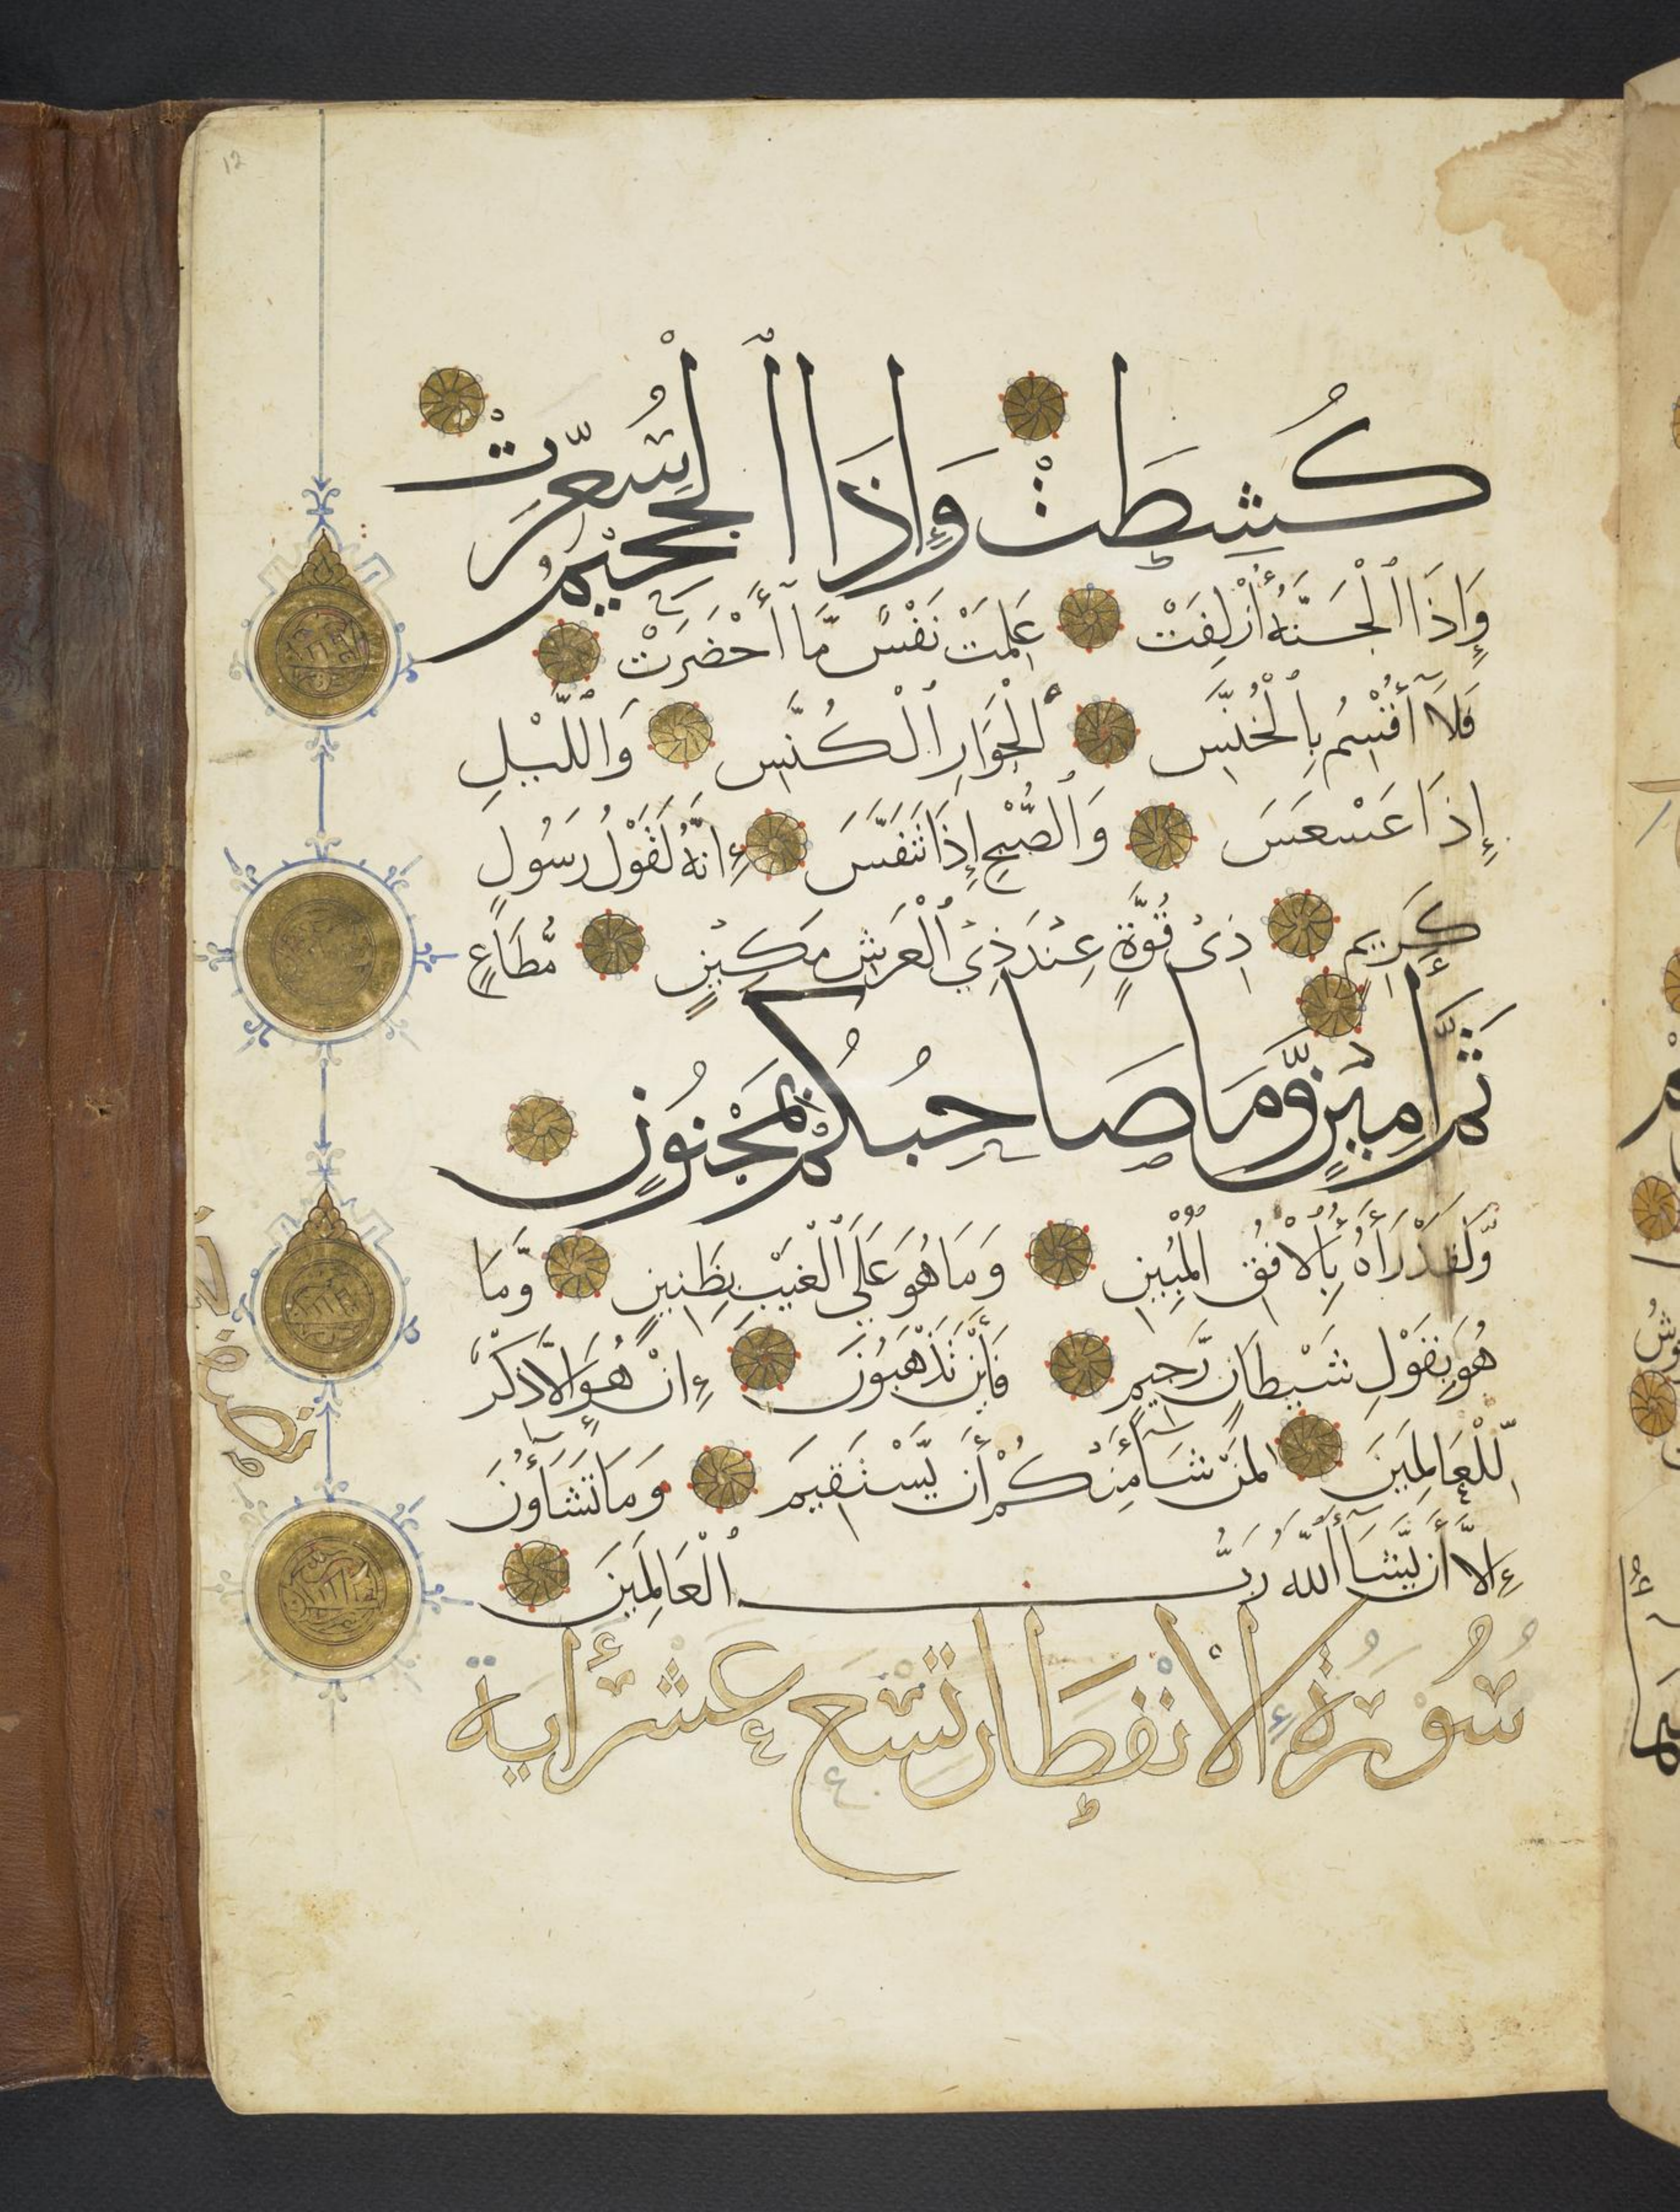 12
كُشِطَتْ وَإِذَا ٱلْجَحِيمُ سُعِّرَتْ
وَإِذَا ٱلْجَنَّةُ أُزْلِفَتْ عَلِمَتْ نَفْسٌ مَّآ أَحْضَرَتْ
فَلَآ أُقْسِمُ بِٱلْخُنَّسِ ٱلْجَوَارِ ٱلْكُنَّسِ وَاللَّيْلِ
إِذَا عَسْعَسَ وَٱلصُّبْحِ إِذَا تَنَفَّسَ إِنَّهُ لَقَوْلُ رَسُولٍ
كَرِيمٍ ذِي قُوَّةٍ عِنْدَ ذِي ٱلْعَرْشِ مَكِينٍ مُّطَاعٍ
ثَمَّ أَمِينٍ وَّمَا صَاحِبُكُمْ بِمَجْنُونٍ
وَّلَقَدْ رَأَهُ بِٱلْأُفُقِ ٱلْمُبِينِ وَمَا هُوَ عَلَى ٱلْغَيْبِ بِظَنِينٍ وَّمَا
هُوَ بِقَوْلِ شَيْطَانٍ رَّجِيمٍ فَأَيْنَ تَذْهَبُونَ إِنْ هُوَ إِلَّا ذِكْرٌ
لِّلْعَالَمِينَ لِمَنْ شَآءَ مِنْكُمْ أَن يَّسْتَقِيمَ وَمَا تَشَآؤُنَ
إِلَّآ أَن يَّشَآءَ ٱللَّهُ رَبُّ ٱلْعَالَمِينَ
سُورَةُ الْإِنْفِطَار تسع عشر أية